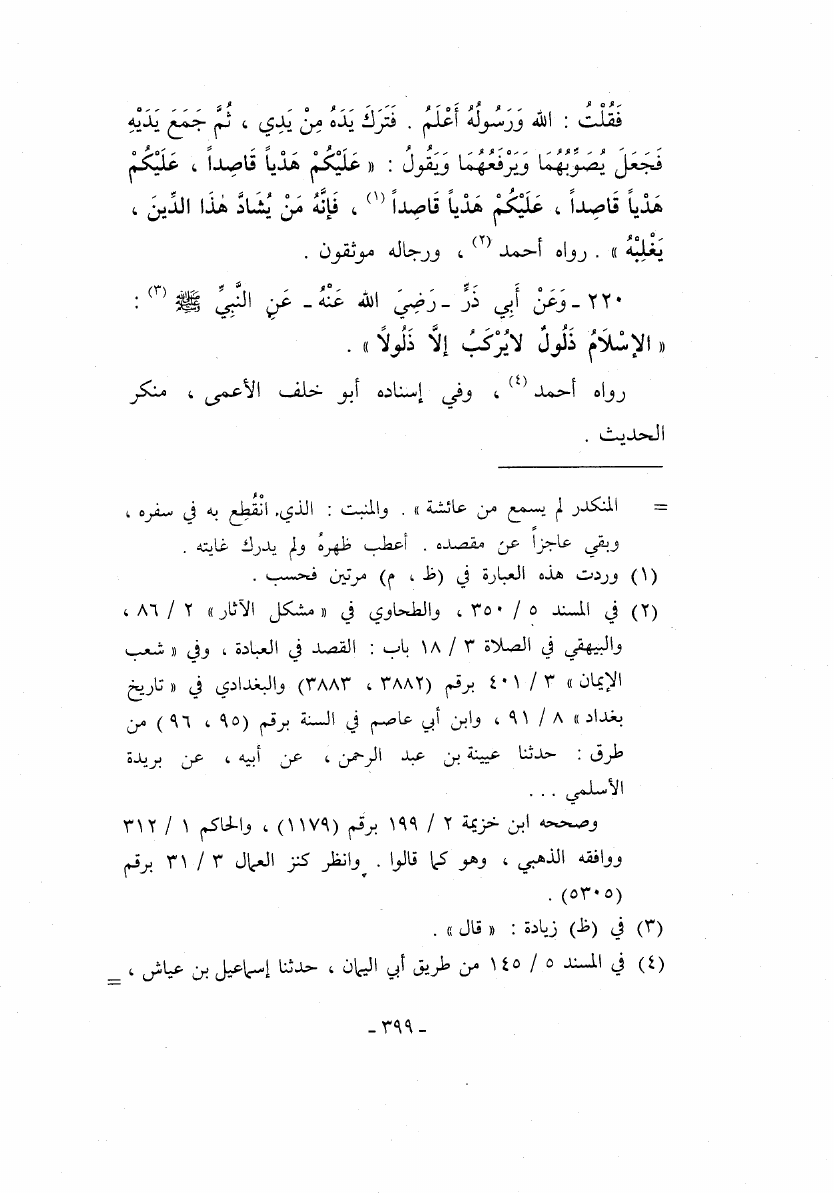 فَقُلْتُ : الله وَرَسُولُهُ أَعْلَمُ . فَتَرَكَ يَدَهُ مِنْ يَدِي ، ثُمَّ جَمَعَ يَدَيْهِ
فَجَعَلَ يُصَوِّبُهُمَا وَيَرْفَعُهُمَا وَيَقُولُ : « عَلَيْكُمْ هَدْياً قَاصِداً ، عَلَيْكُمْ
هَدْياً قَاصِداً ، عَلَيْكُمْ هَدْياً قَاصِداً (١) ، فَإِنَّهُ مَنْ يُشَادَّ هَذَا الدِّينَ ،
يَغْلِبْهُ » . رواه أحمد (٢) ، ورجاله موثقون .
٢٢٠ ـ وَعَنْ أَبِي ذَرٍّ ـ رَضِيَ الله عَنْهُ ـ عَنِ النَّبِيِّ ﷺ (٣) :
« الإِسْلَامُ ذَلُولٌ لاَيُرْكَبُ إِلاَّ ذَلُولاً » .
رواه أحمد (٤) ، وفي إسناده أبو خلف الأعمى ، منكر
الحديث .
= المنكدر لم يسمع من عائشة » . والمنبت : الذي انْقُطِع به في سفره ،
وبقي عاجزاً عن مقصده . أعطب ظهرهُ ولم يدرك غايته .
(١) وردت هذه العبارة في (ظ ، م) مرتين فحسب .
(٢) في المسند ٥ / ٣٥٠ ، والطحاوي في « مشكل الآثار » ٢ / ٨٦ ،
والبيهقي في الصلاة ٣ / ١٨ باب : القصد في العبادة ، وفي « شعب
الإيمان » ٣ / ٤٠١ برقم (٣٨٨٢ ، ٣٨٨٣) والبغدادي في « تاريخ
بغداد » ٨ / ٩١ ، وابن أبي عاصم في السنة برقم (٩٥ ، ٩٦) من
طرق : حدثنا عيينة بن عبد الرحمن ، عن أبيه ، عن بريدة
الأسلمي ...
وصححه ابن خزيمة ٢ / ١٩٩ برقم (١١٧٩) ، والحاكم ١ / ٣١٢
ووافقه الذهبي ، وهو كما قالوا . وانظر كنز العمال ٣ / ٣١ برقم
(٥٣٠٥) .
(٣) في (ظ) زيادة : « قال » .
(٤) في المسند ٥ / ١٤٥ من طريق أبي اليمان ، حدثنا إسماعيل بن عياش ، =
ـ ٣٩٩ ـ